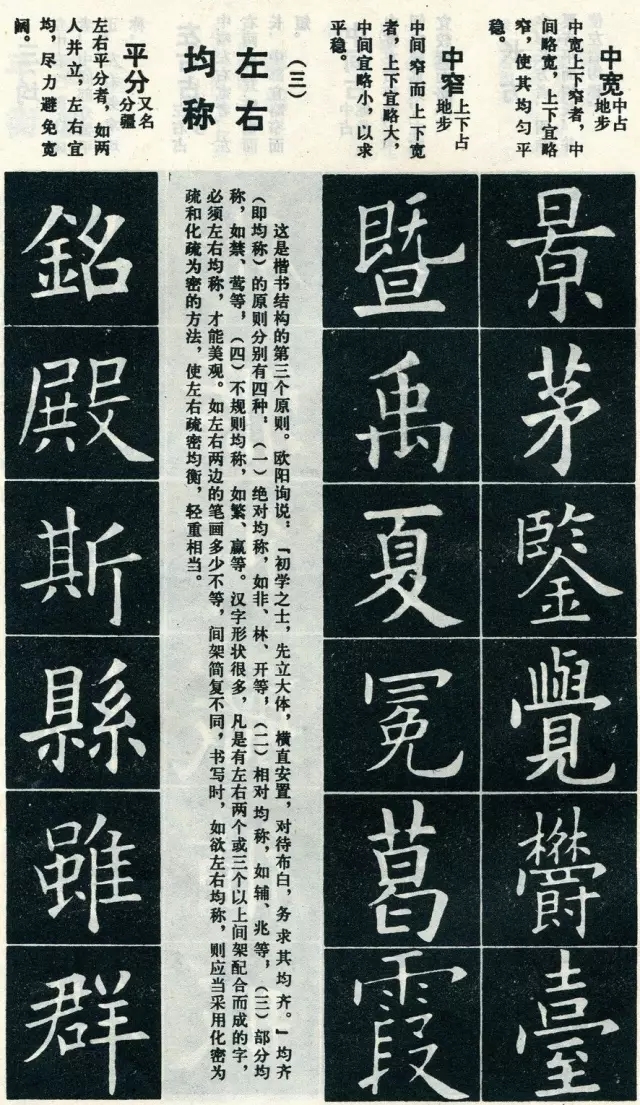 中宽中占地步
中宽上下窄者，中
间略宽，上下宜略
窄，使其均匀平
稳。
景
茅
鑒
覺
欝
臺
中窄上下占地步
中间窄而上下宽
者，上下宜略大，
中间宜略小，以求
平稳。
暨
禹
夏
冕
葛
霞
（三）
左右
均称
这是楷书结构的第三个原则。欧阳询说：“初学之士，先立大体，横直安置，对待布白，务求其均齐。”均齐
（即均称）的原则分别有四种，（一）绝对均称，如非、林、开等，（二）相对均称，如辅、兆等，（三）部分均
称，如禁、莺等，（四）不规则均称，如繁、赢等。汉字形状很多，凡是有左右两个或三个以上间架配合而成的字，
必须左右均称，才能美观。如左右两边的笔画多少不等，间架简复不同，书写时，如欲左右均称，则应当采用化密为
疏和化疏为密的方法，使左右疏密均衡，轻重相当。
平分又名分疆
左右平分者，如两
人并立，左右宜
均，尽力避免宽
阔。
銘
殿
斯
縣
雖
群